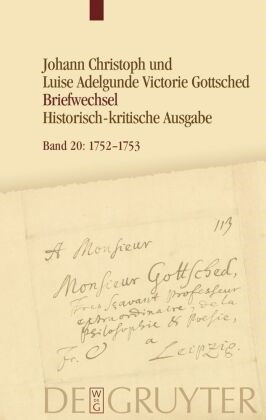 Johann Christoph und
Luise Adelgunde Victorie Gottsched
Briefwechsel
Historisch-kritische Ausgabe
Band 20: 1752–1753
113
A Monsieur
Monsieur Gottsched,
Professeur
extraordinaire, de la
Philosophie & Poësie,
Fr. a
Leipzig.
W
DE
G
DE GRUYTER